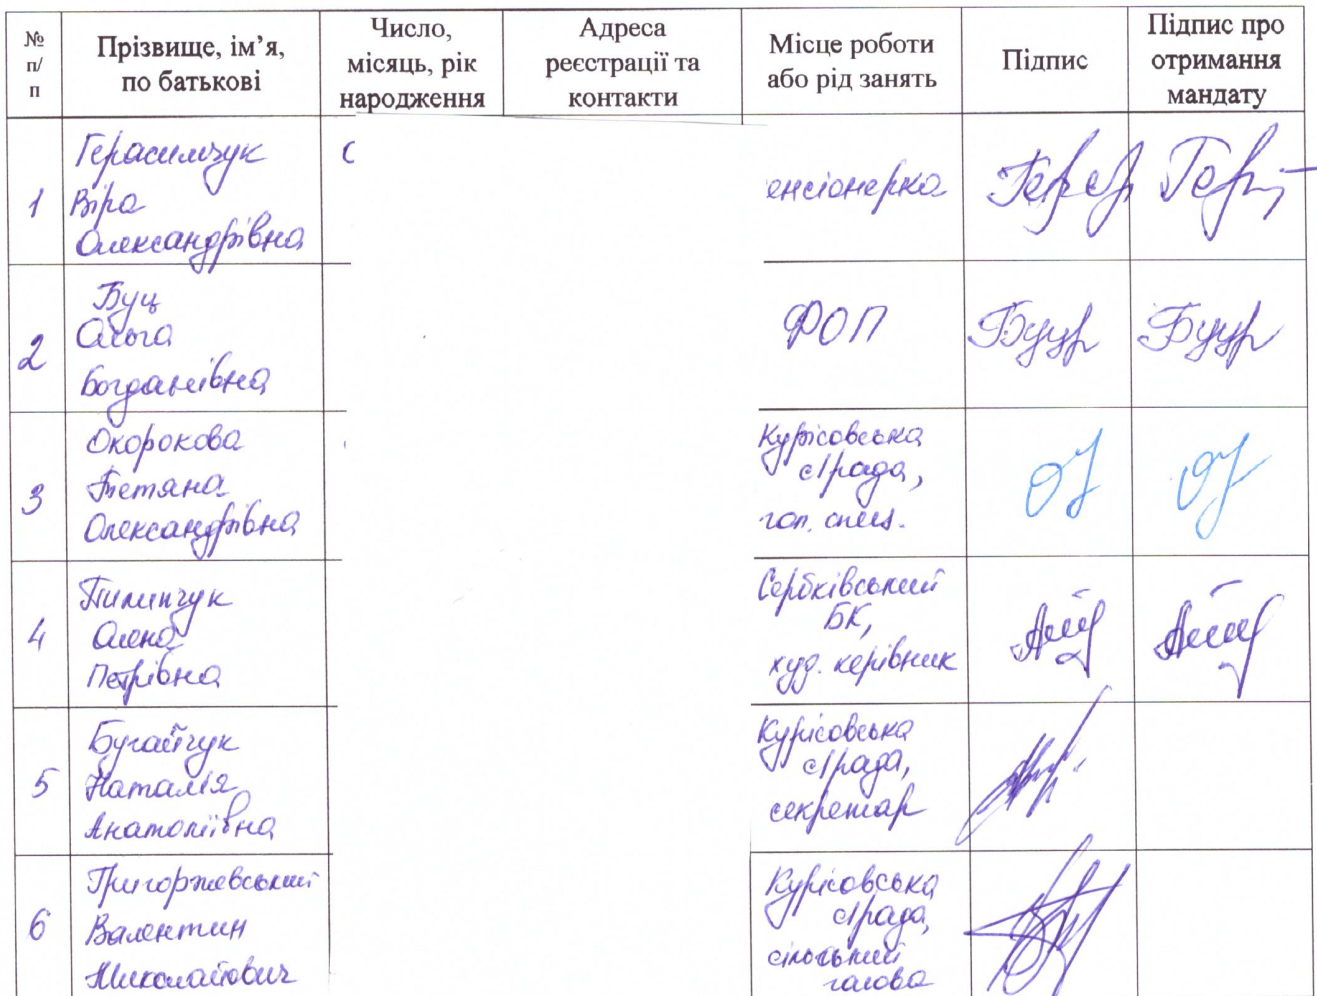 № п/п
Прізвище, ім’я, по батькові
Число, місяць, рік народження
Адреса реєстрації та контакти
Місце роботи або рід занять
Підпис
Підпис про отримання мандату
1
Герасимчук
Віра
Олександрівна
енсіонерка
2
Буц
Ольга
Богданівна
ФОП
3
Окорокова
Тетяна
Олександрівна
Курісовська
с/рада,
гол. спец.
4
Пилипчук
Олена
Петрівна
Сербківський
БК,
худ. керівник
5
Бугайчук
Наталія
Анатоліївна
Курісовська
с/рада,
секретар
6
Григоржевський
Валентин
Миколайович
Курісовська
с/рада,
сільський
голова